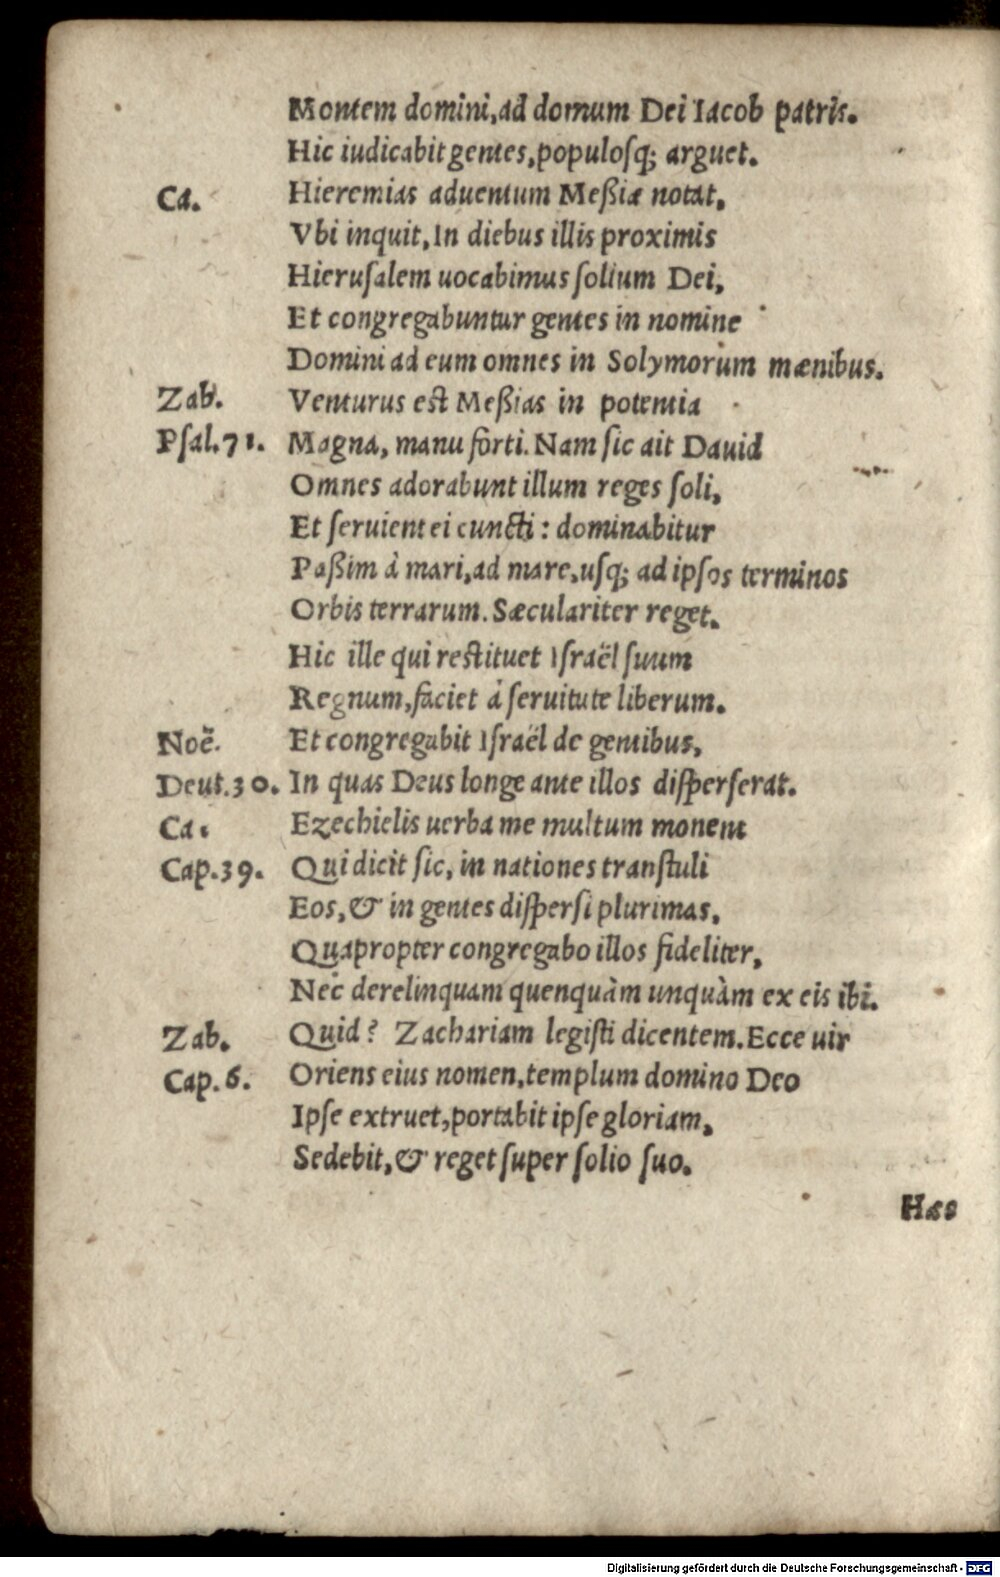 Montem domini, ad domum Dei Iacob patris.
Hic iudicabit gentes, populosq; arguet.
Ca. Hieremias aduentum Meßiæ notat,
Vbi inquit, In diebus illis proximis
Hierusalem uocabimus solium Dei,
Et congregabuntur gentes in nomine
Domini ad eum omnes in Solymorum mœnibus.
Zab. Venturus est Meßias in potentia
Psal. 71. Magna, manu forti. Nam sic ait Dauid
Omnes adorabunt illum reges soli,
Et seruient ei cuncti : dominabitur
Paßim à mari, ad mare, usq; ad ipsos terminos
Orbis terrarum. Sæculariter reget.
Hic ille qui restituet Israël suum
Regnum, faciet à seruitute liberum.
Noë. Et congregabit Israël de gentibus,
Deut. 30. In quas Deus longe ante illos disperserat.
Ca. Ezechielis uerba me multum monent
Cap. 39. Qui dicit sic, in nationes transtuli
Eos, & in gentes dispersi plurimas,
Quapropter congregabo illos fideliter,
Nec derelinquam quenquàm unquàm ex eis ibi.
Zab. Quid? Zachariam legisti dicentem. Ecce uir
Cap. 6. Oriens eius nomen, templum domino Deo
Ipse extruet, portabit ipse gloriam,
Sedebit, & reget super solio suo.
Digitalisierung gefördert durch die Deutsche Forschungsgemeinschaft - DFG